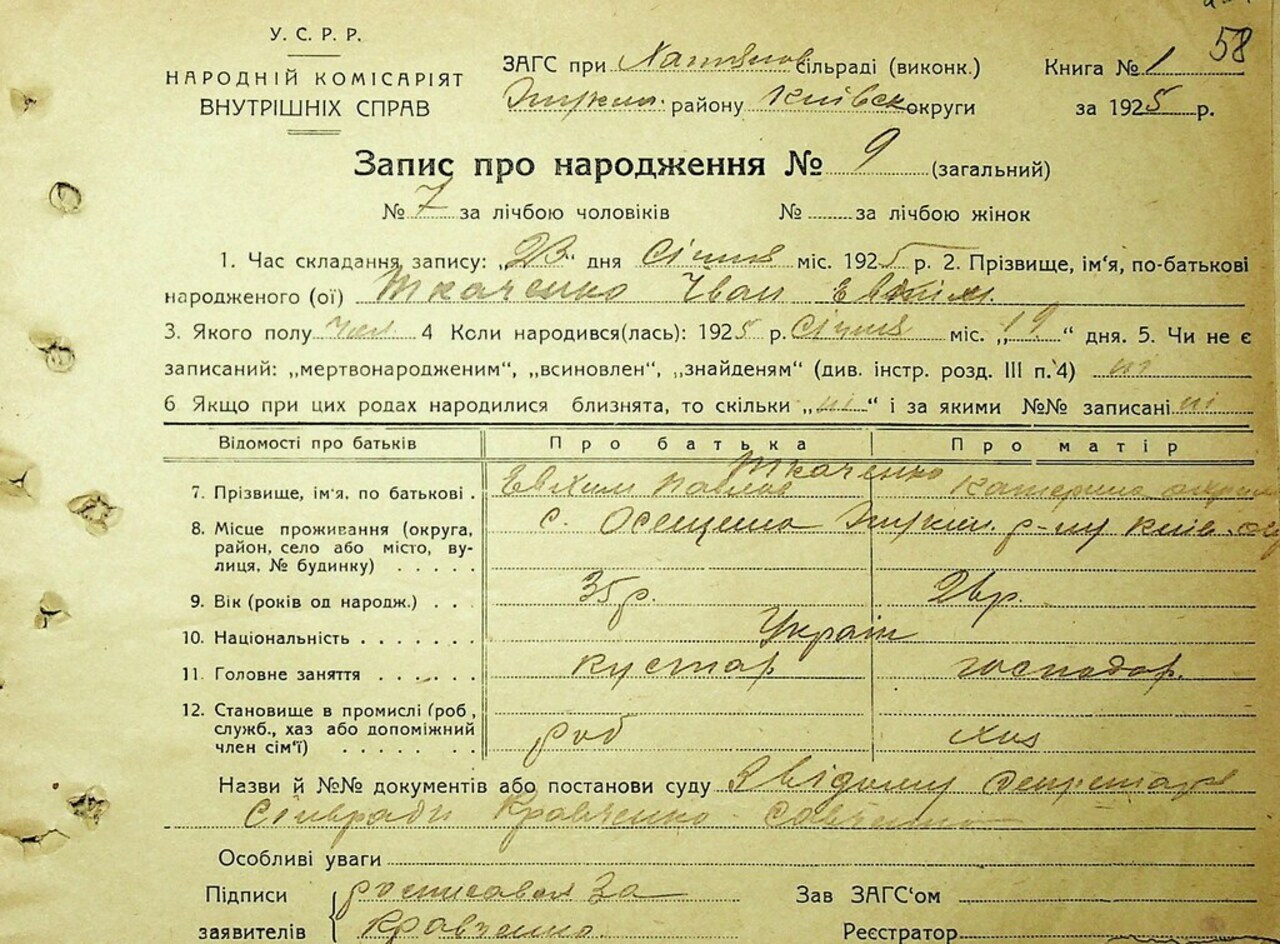 У. С. Р. Р.
НАРОДНІЙ КОМІСАРІЯТ
ВНУТРІШНІХ СПРАВ
58
ЗАГС при сільраді (виконк.)
Книга № 1
району Київск округи
за 1925 р.
Запис про народження № 9 (загальний)
№ 7 за лічбою чоловіків № за лічбою жінок
1. Час складання запису: „23“ дня Січня міс. 1925 р. 2. Прізвище, ім'я, по-батькові
народженого (ої) Ткаченко Іван Евхим.
3. Якого полу чол. 4 Коли народився(лась): 1925 р. Січня міс. „19“ дня. 5. Чи не є
записаний: „мертвонародженим“, „всиновлен“, „знайденям“ (див. інстр. розд. III п. 4) ні
6 Якщо при цих родах народилися близнята, то скільки „ні“ і за якими №№ записані ні
Відомості про батьків Про батька Про матір
Ткаченко
7. Прізвище, ім'я, по батькові . Евхим Павлов Катерина
8. Місце проживання (округа, с. Осещена р-ну Київ.
район, село або місто, ву-
лиця, № будинку) . . . . .
9. Вік (років од народж.) . . . 35 р. 26 р.
10. Національність . . . . . . . Украін
11. Головне заняття . . . . . . кустар господар.
12. Становище в промислі (роб,
служб., хаз або допоміжний роб хаз
член сім'ї) . . . . . .
Назви й №№ документів або постанови суду З відому секретаря
Сільради Кравченко-
Особливі уваги
Підписи росписався за
Зав ЗАГС'ом
заявителів Кравченко
Реєстратор